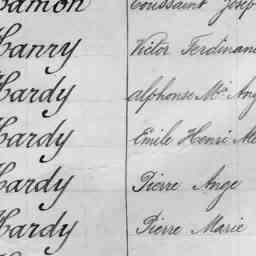 Hamon Toussaint Josep
Hanry Victor Ferdinan
Hardy Alphonse M. Ang
Hardy Emile Henri Al
Hardy Pierre Ange
Hardy Pierre Marie